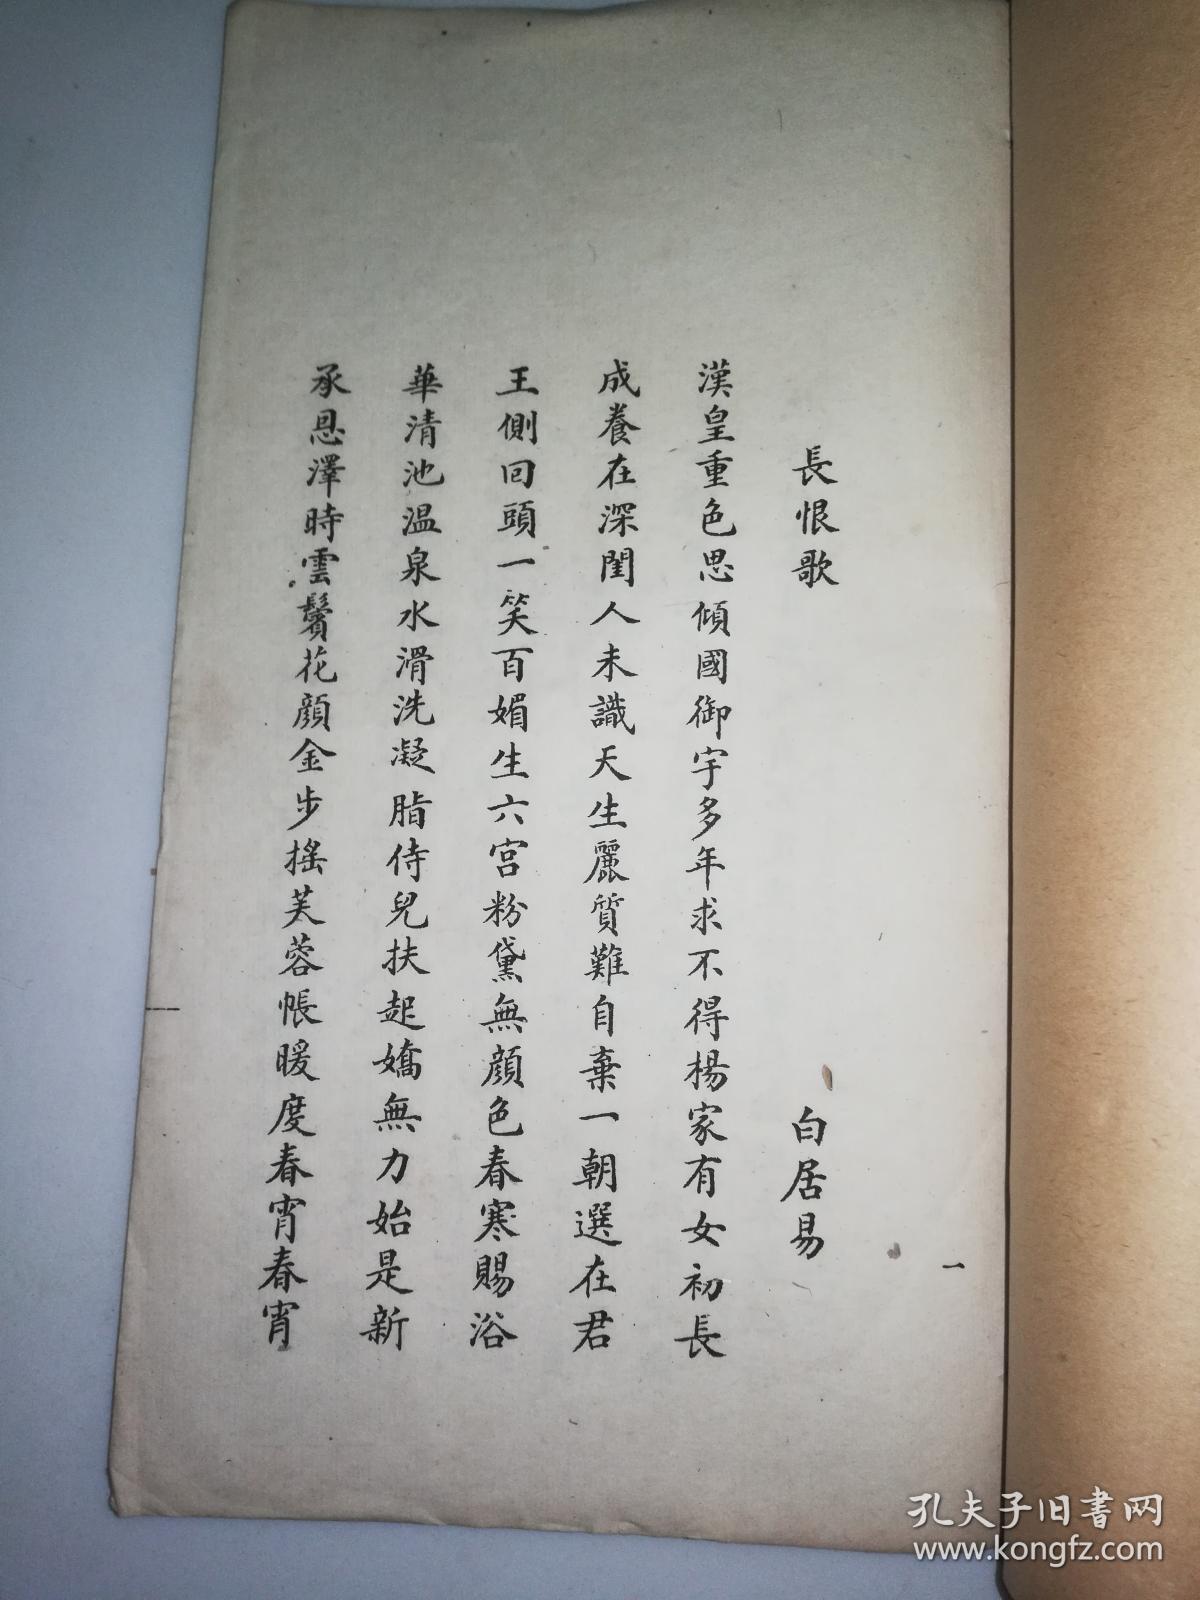 長恨歌 白居易
漢皇重色思傾國御宇多年求不得楊家有女初長
成養在深閨人未識天生麗質難自棄一朝選在君
王側回頭一笑百媚生六宮粉黛無顏色春寒賜浴
華清池温泉水滑洗凝脂侍兒扶起嬌無力始是新
承恩澤時雲鬢花顏金步搖芙蓉帳暖度春宵春宵
一
孔夫子旧书网
www.kongfz.com